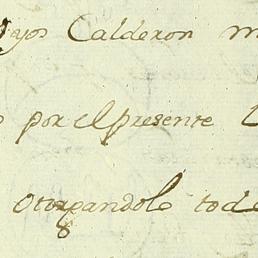 Calderon
por el presente
otorgandole tod